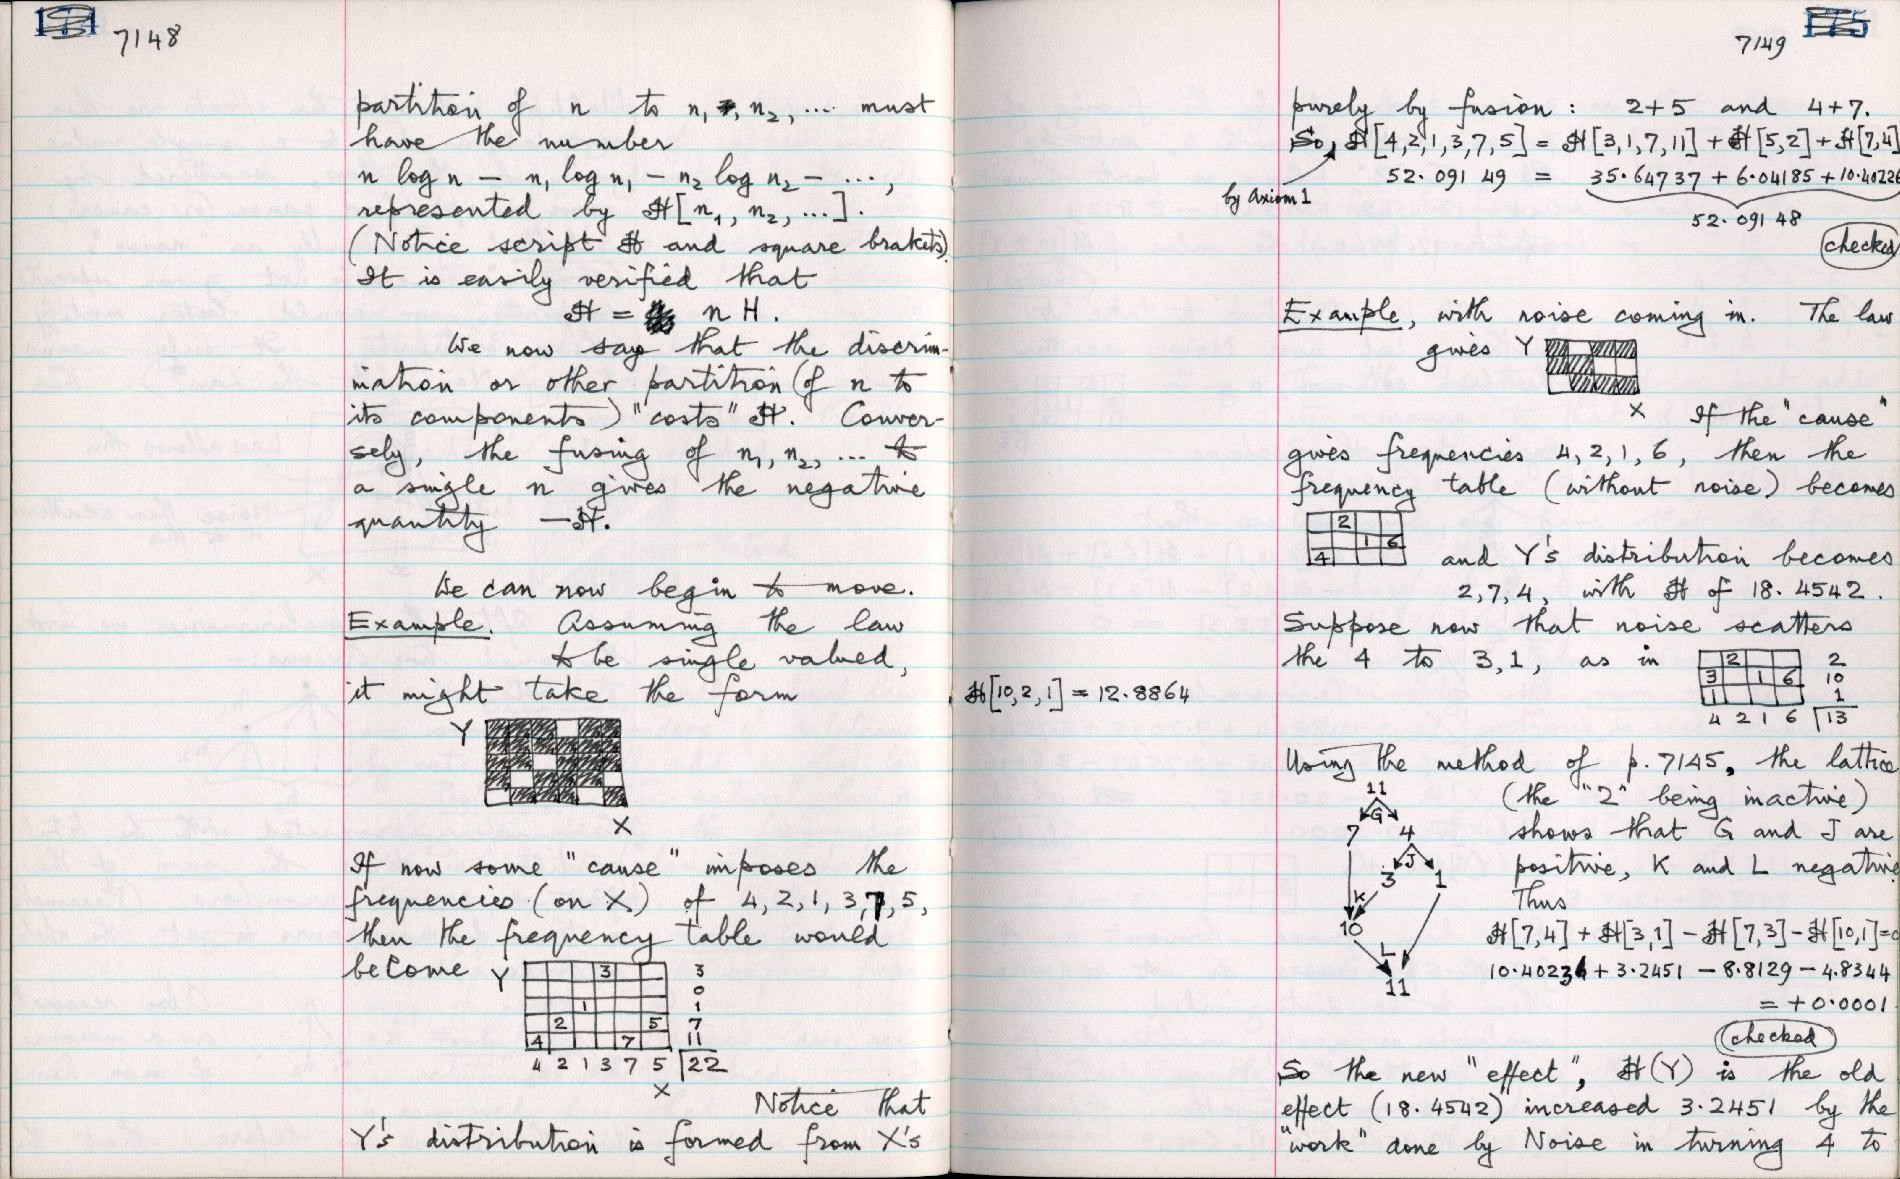 7148
partition of n to n₁, n₂, ... must
have the number
n log n – n₁ log n₁ – n₂ log n₂ – ...,
represented by H[n₁, n₂, ...].
(Notice script H and square brakets).
It is easily verified that
H = n H.
We now say that the discrim-
ination or other partition (of n to
its components) "costs" H. Conver-
sely, the fusing of n₁, n₂, ... to
a single n gives the negative
quantity –H.
We can now begin to move.
Example. Assuming the law
to be single valued,
it might take the form
Y
X
If now some "cause" imposes the
frequencies (on X) of 4, 2, 1, 3, 7, 5,
then the frequency table would
become Y
3 3
0
1 1
2 5 7
4 7 11
4 2 1 3 7 5 22
X
Notice that
Y's distribution is formed from X's
175
7149
purely by fusion : 2+5 and 4+7.
So, H[4,2,1,3,7,5] = H[3,1,7,11] + H[5,2] + H[7,4]
52.09149 = 35.64737 + 6.04185 + 10.40226
by Axiom 1
52.09148
checked
Example, with noise coming in. The law
gives Y
X
If the "cause"
gives frequencies 4, 2, 1, 6, then the
frequency table (without noise) becomes
2
1 6
4
and Y's distribution becomes
2, 7, 4, with H of 18.4542.
Suppose now that noise scatters
the 4 to 3, 1, as in
2 2
3 1 6 10
1 1
4 2 1 6 13
H[10,2,1] = 12.8864
Using the method of p. 7145, the lattice
(the "2" being inactive)
shows that G and J are
positive, K and L negative
Thus
11
G
7 4
J
3 1
K
10
L
11
H[7,4] + H[3,1] – H[7,3] – H[10,1] = 0
10.4023 + 3.2451 – 8.8129 – 4.8344
= +0.0001
checked
So the new "effect", H(Y) is the old
effect (18.4542) increased 3.2451 by the
"work" done by Noise in turning 4 to